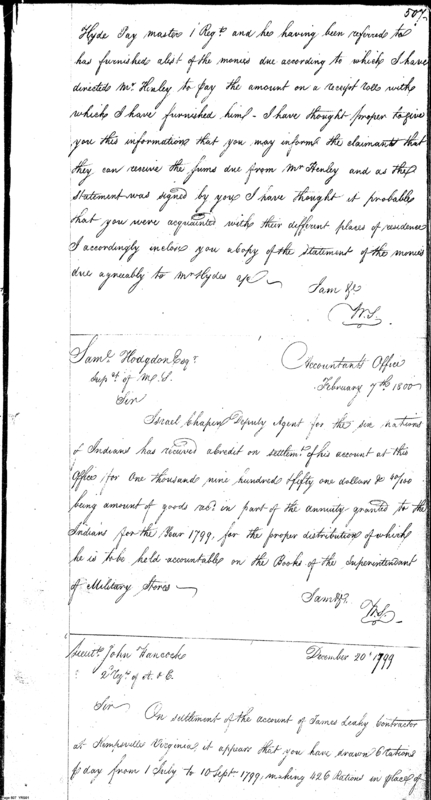 507.
Hyde Pay master 1 Regt and he having been referred to
has furnished a list of the monies due according to which I have
directed Mr Henley to pay the amount on a receipt rolls with
which I have furnished him - I have thought proper to give
you this information that you may inform the claimants that
they can receive the sums due from Mr Henley and as the
Statement was signed by you I have thought it probable
that you were acquainted with their different places of residence
I accordingly inclose you a Copy of the Statement of the monies
due agreeably to Mr Hydes
I am &c
W.S.
Saml Hodgdon Esqr
Supt of M.S.
Accountants Office
February 7th 1800
Sir
Israel Chapin Deputy Agent for the six nations
of Indians has received a credit on settlemt of his account at this
Office for One thousand nine hundred & fifty one dollars & /100
being amount of goods in part of the annuity granted to the
Indians for the Year 1799, for the proper distribution of which
he is to be held accountable on the Books of the Superintendant
of Military Stores
I am &c.
W.S.
Lieutt John Hancock
2 Regt of A. & E.
December 20th 1799
Sir
On settlement of the account of James Leahy Contractor
at Kempsville Virginia it appears that you have drawn 6 rations
day from 1 July to 10 Sept. 1799, making 426 Rations in place of